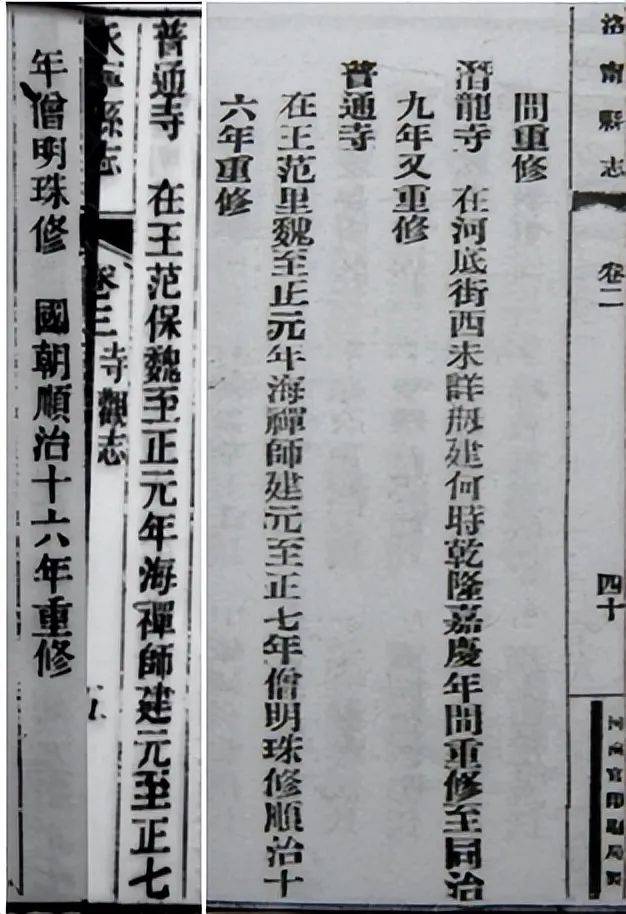 洛甯縣志
卷二
四十
河南官印刷局製
間重修
潛龍寺 在河底街西未詳剏建何時乾隆嘉慶年間重修至同治
九年又重修
普通寺
在王范里魏至正元年海禪師建元至正七年僧明珠修順治十
六年重修
普通寺 在王范保魏至正元年海禪師建元至正七
永寧縣志
卷三 寺觀志
年僧明珠修 國朝順治十六年重修